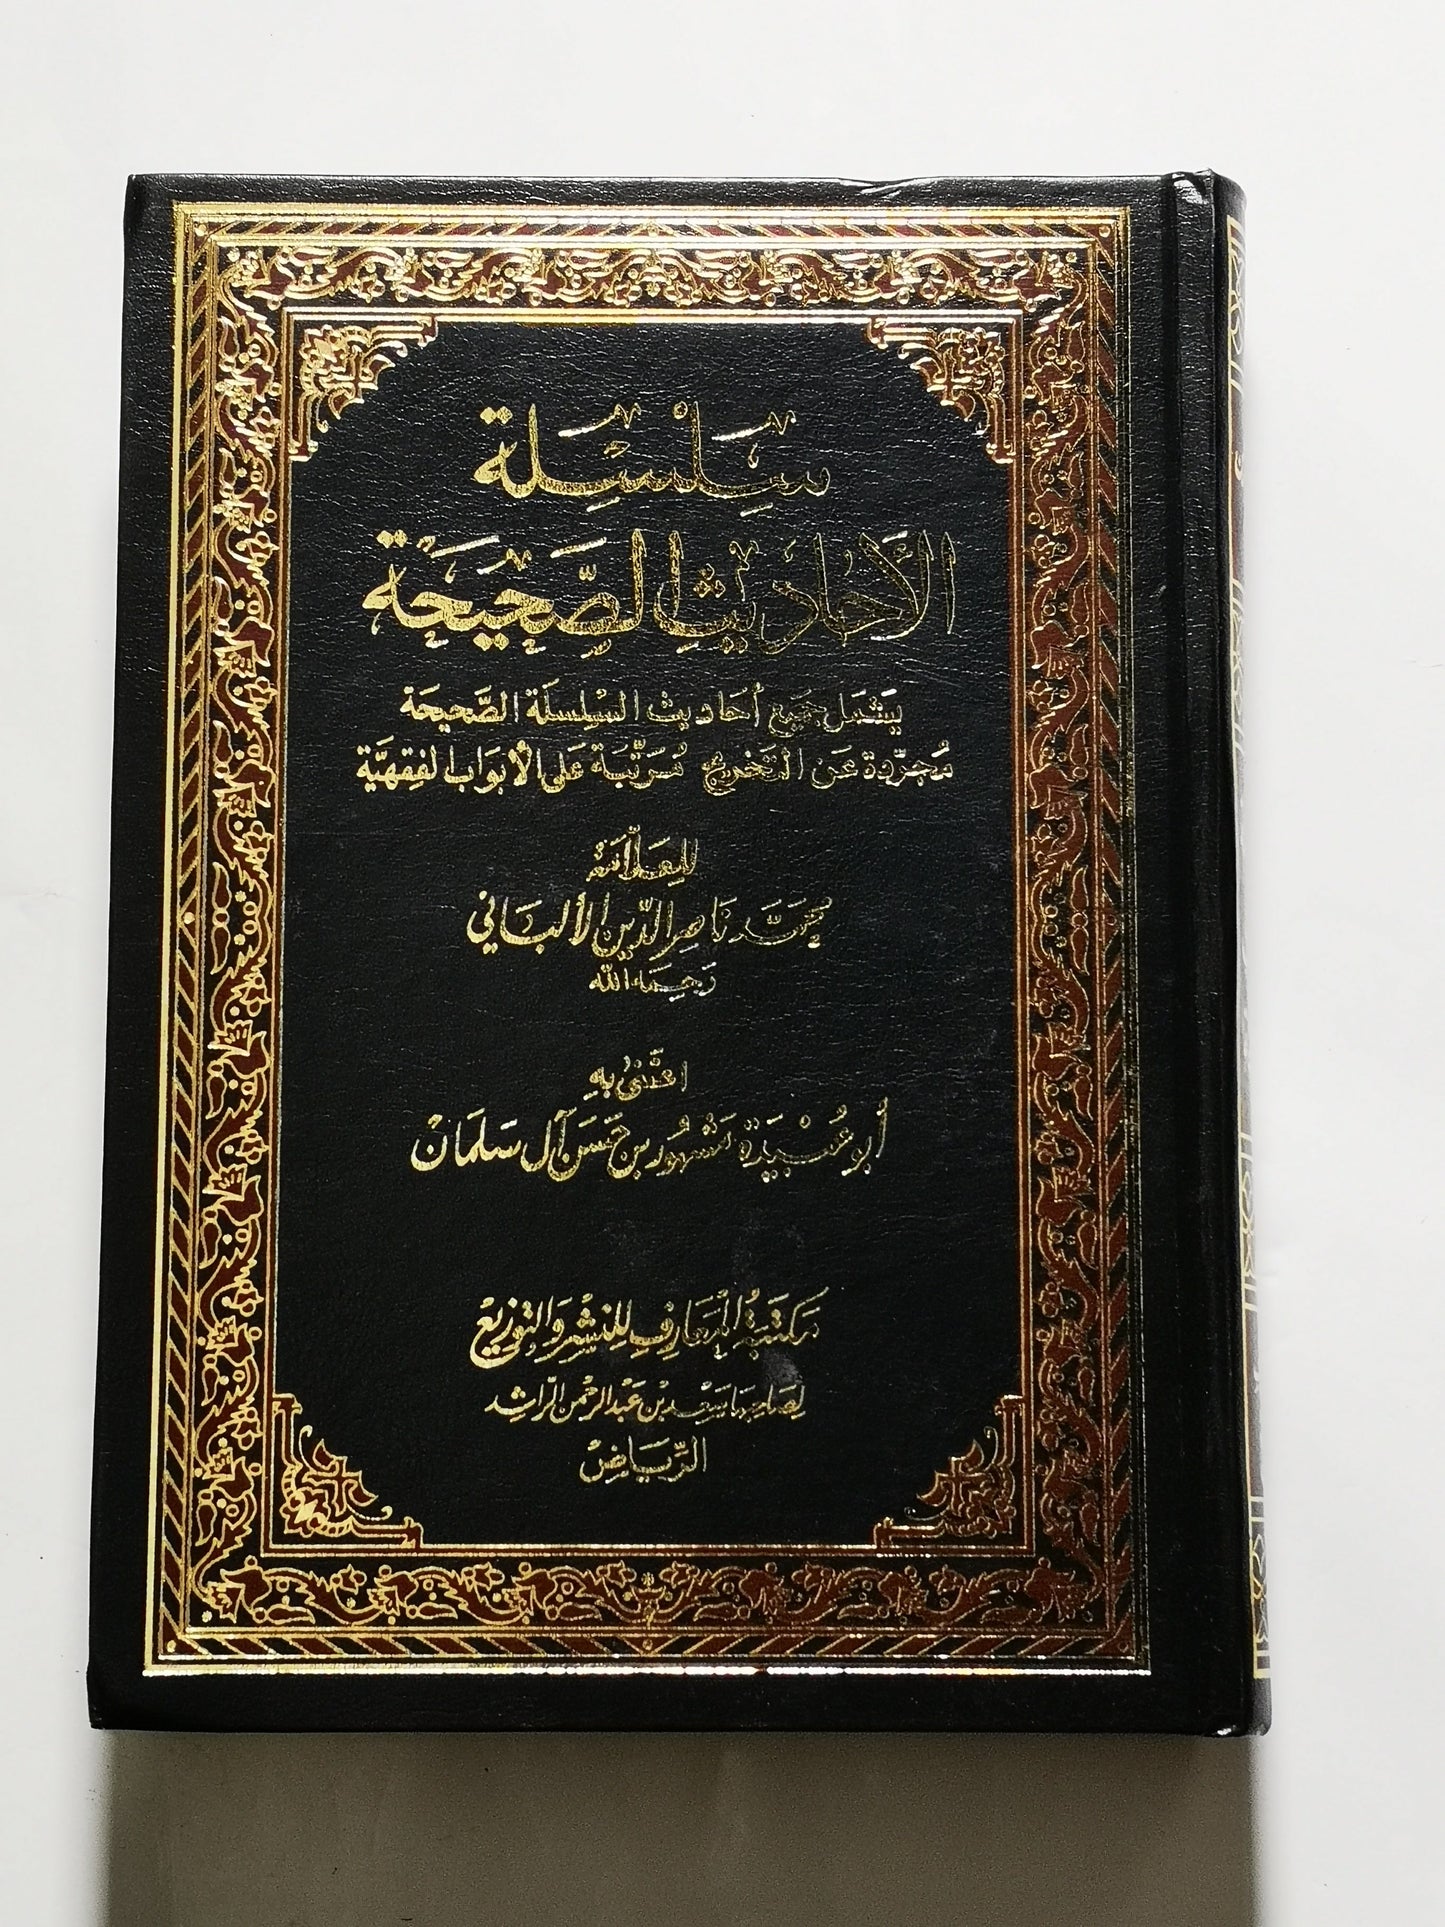 سِلْسِلَة
الأَحَادِيثِ الصَّحِيحَة
يَشْمَل جَمِيع أحَاديث السِّلسِلَة الصَّحيحَة
مُجَرَّدة عَن التخريج مُرَتَّبَة عَلى الأبوَاب الفِقهيَّة
للِعَلّامَة
محَمَّد نَاصِر الدِّين الألبَاني
رَحِمَهُ الله
اعْتَنىٰ بِهِ
أبو عُبَيْدَة مَشْهُور بن حَسَن آل سَلمَان
مَكتَبة المَعَارِف لِلنَشْرِ وَالتوزيْع
لِصَاحِبهَا سَعد بن عَبْد الرحْمن الرَّاشِد
الرِّيَاضْ